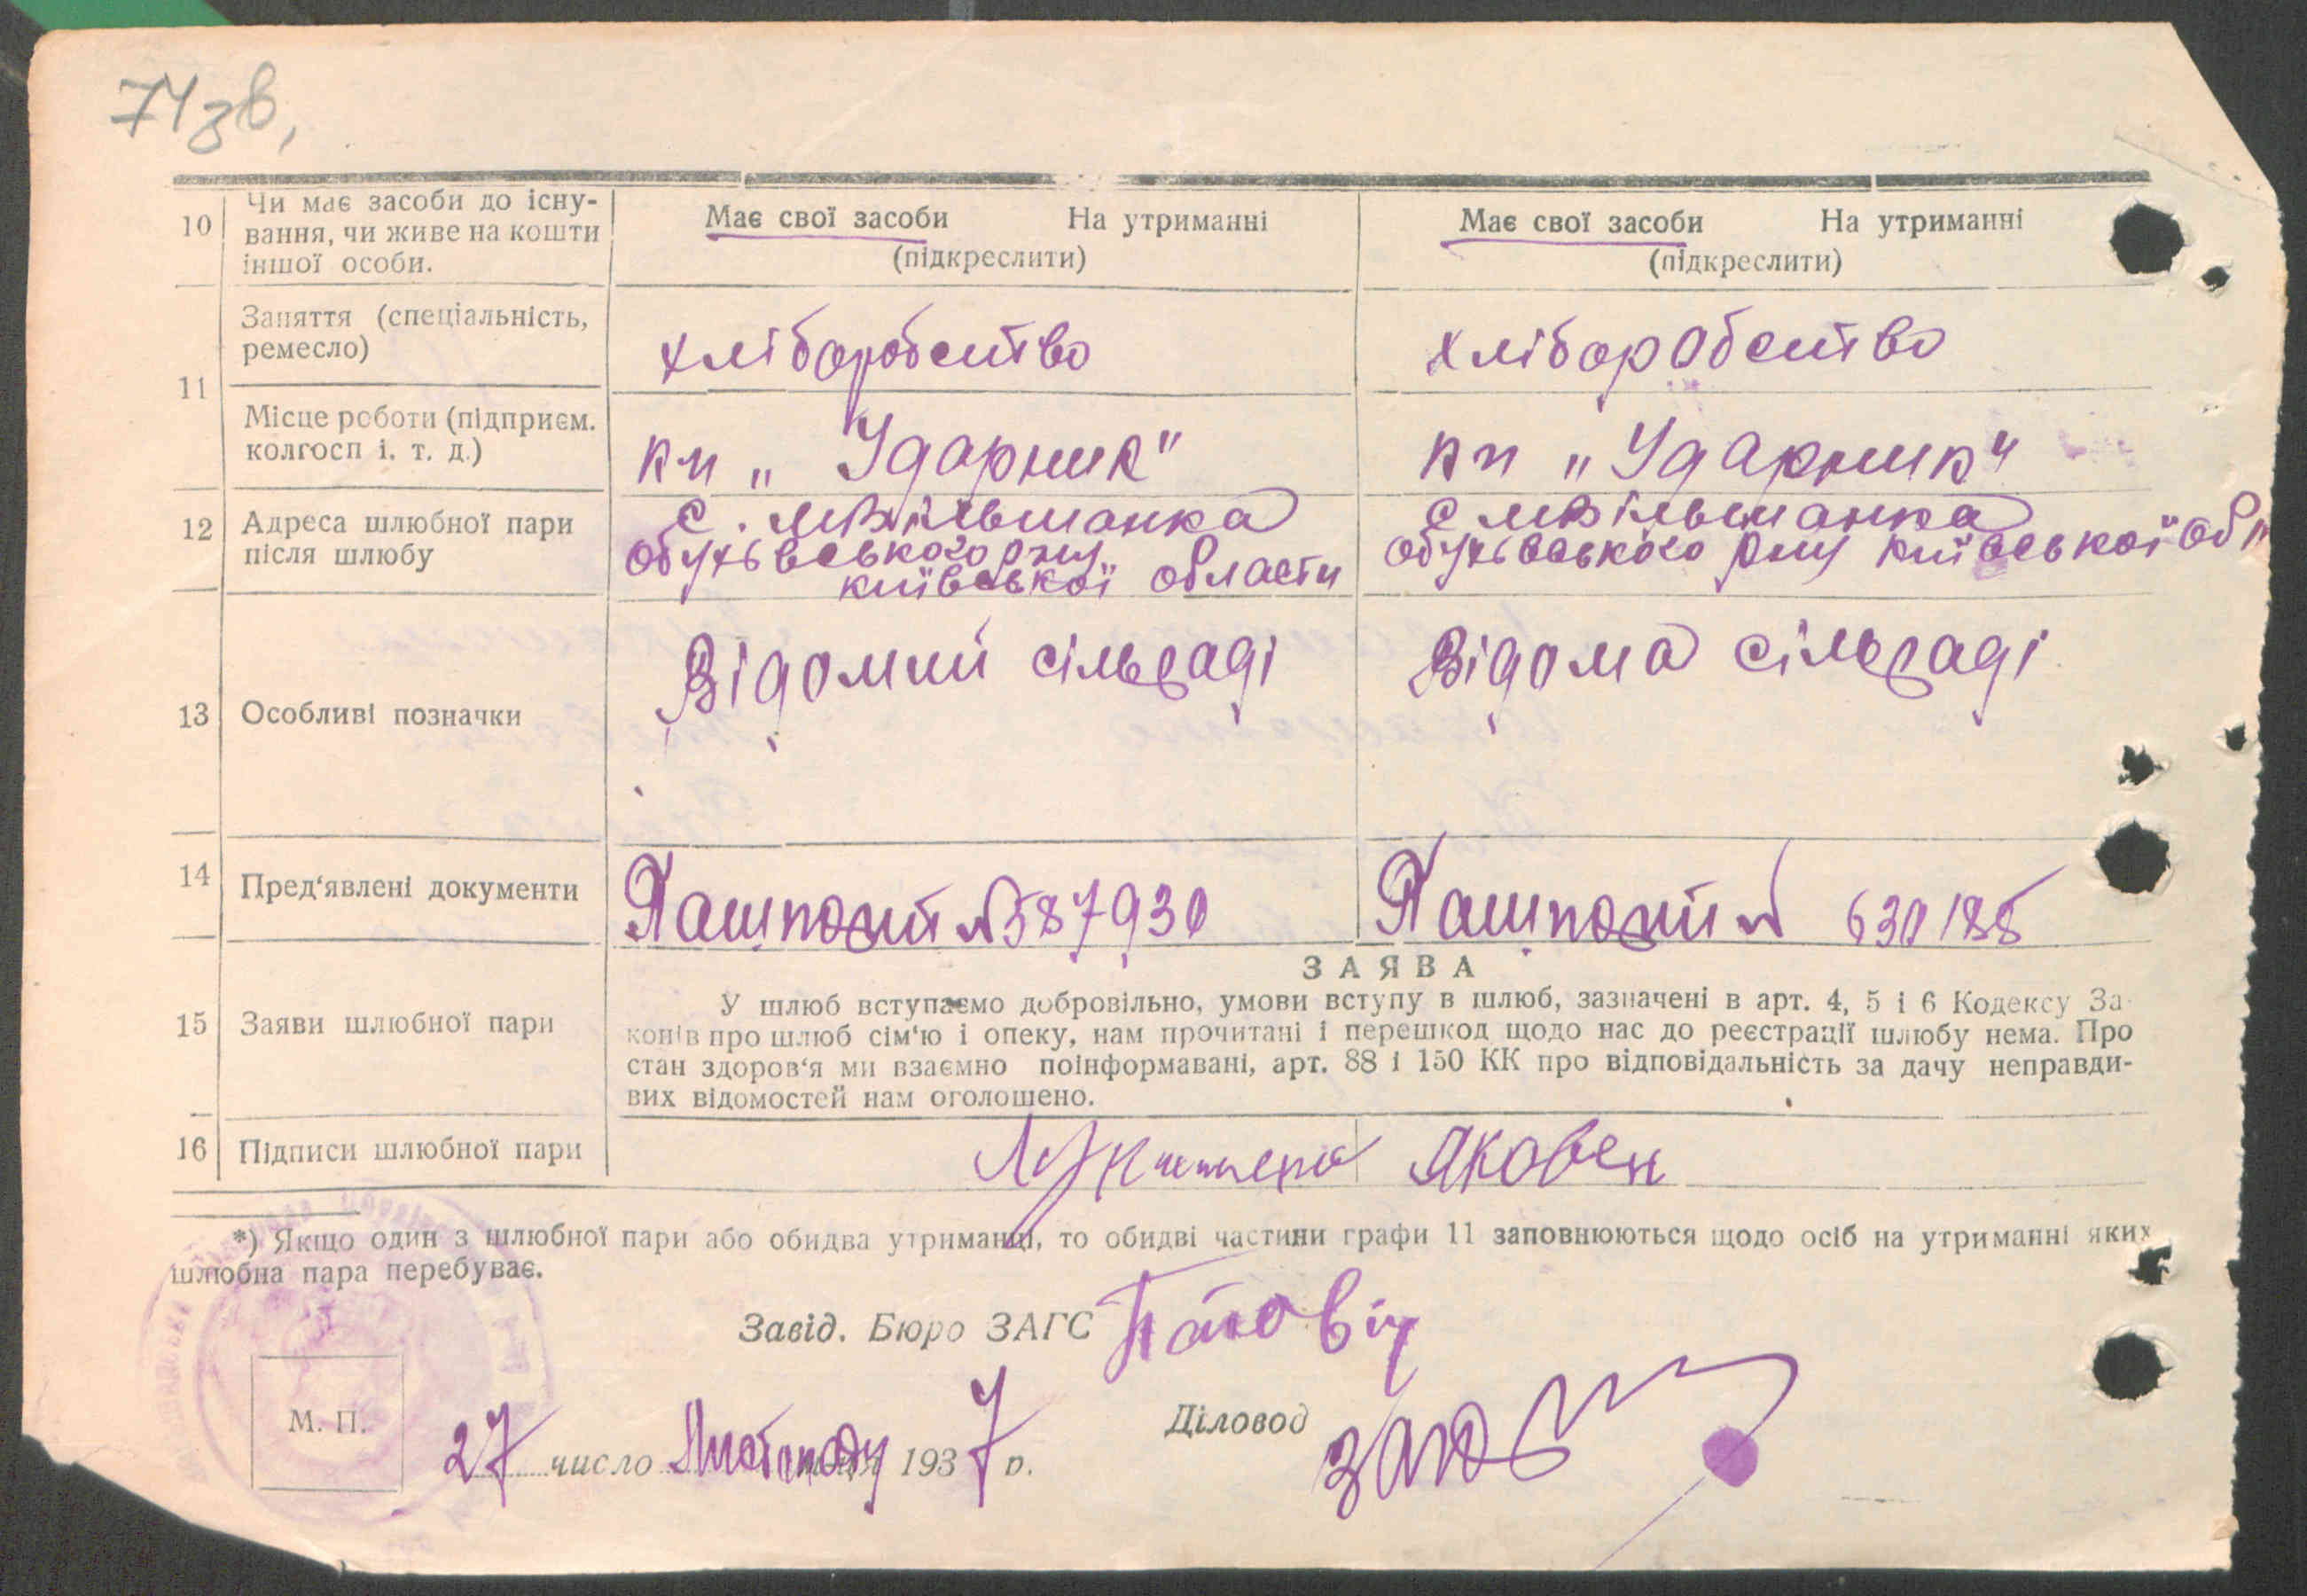 74 зв,
10 Чи має засоби до існу-
вання, чи живе на кошти
іншої особи.
Має свої засоби На утриманні
(підкреслити)
Має свої засоби На утриманні
(підкреслити)
11
Заняття (спеціальність,
ремесло)
хліборобство
хліборобство
Місце роботи (підприєм.
колгосп і. т. д.)
кп „Ударник"
кп „Ударник"
12 Адреса шлюбної пари
після шлюбу
с. мвільшанка
обухівського рну
київської области
с мвільшанка
обухівського рну київської обл
13 Особливі позначки
Відомий сільраді
Відома сільраді
14 Пред'явлені документи
Пашпорт № 587930
Пашпорт № 630188
15 Заяви шлюбної пари
ЗАЯВА
У шлюб вступаємо добровільно, умови вступу в шлюб, зазначені в арт. 4, 5 і 6 Кодексу За-
конів про шлюб сім'ю і опеку, нам прочитані і перешкод щодо нас до реєстрації шлюбу нема. Про
стан здоров'я ми взаємно поінформавані, арт. 88 і 150 КК про відповідальність за дачу неправди-
вих відомостей нам оголошено.
16 Підписи шлюбної пари
Яковен
*) Якщо один з шлюбної пари або обидва утриманці, то обидві частини графи 11 заповнюються щодо осіб на утриманні яких
шлюбна пара перебуває.
Завід. Бюро ЗАГС
М. П.
27 число Листопаду 1937 р.
Діловод